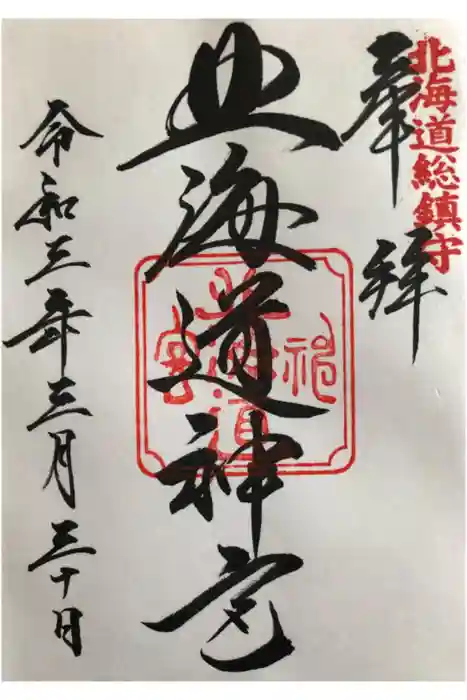 北海道総鎮守
奉拝
北海道神宮
北海道神宮
令和三年三月三十日